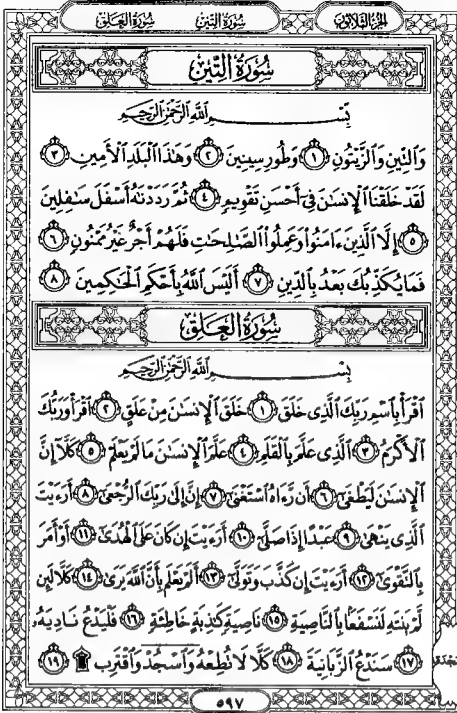 الجزء الثلاثون سورة التين سورة العلق
سُورَةُ التِّينِ
بِسْمِ اللَّهِ الرَّحْمَٰنِ الرَّحِيمِ
وَالتِّينِ وَالزَّيْتُونِ ١ وَطُورِ سِينِينَ ٢ وَهَٰذَا الْبَلَدِ الْأَمِينِ ٣
لَقَدْ خَلَقْنَا الْإِنسَٰنَ فِي أَحْسَنِ تَقْوِيمٍ ٤ ثُمَّ رَدَدْنَٰهُ أَسْفَلَ سَٰفِلِينَ
٥ إِلَّا الَّذِينَ ءَامَنُوا وَعَمِلُوا الصَّٰلِحَٰتِ فَلَهُمْ أَجْرٌ غَيْرُ مَمْنُونٍ ٦
فَمَا يُكَذِّبُكَ بَعْدُ بِالدِّينِ ٧ أَلَيْسَ اللَّهُ بِأَحْكَمِ الْحَٰكِمِينَ ٨
سُورَةُ الْعَلَقِ
بِسْمِ اللَّهِ الرَّحْمَٰنِ الرَّحِيمِ
اقْرَأْ بِاسْمِ رَبِّكَ الَّذِي خَلَقَ ١ خَلَقَ الْإِنسَٰنَ مِنْ عَلَقٍ ٢ اقْرَأْ وَرَبُّكَ
الْأَكْرَمُ ٣ الَّذِي عَلَّمَ بِالْقَلَمِ ٤ عَلَّمَ الْإِنسَٰنَ مَا لَمْ يَعْلَمْ ٥ كَلَّا إِنَّ
الْإِنسَٰنَ لَيَطْغَىٰ ٦ أَن رَّءَاهُ اسْتَغْنَىٰ ٧ إِنَّ إِلَىٰ رَبِّكَ الرُّجْعَىٰ ٨ أَرَءَيْتَ
الَّذِي يَنْهَىٰ ٩ عَبْدًا إِذَا صَلَّىٰ ١٠ أَرَءَيْتَ إِن كَانَ عَلَى الْهُدَىٰ ١١ أَوْ أَمَرَ
بِالتَّقْوَىٰ ١٢ أَرَءَيْتَ إِن كَذَّبَ وَتَوَلَّىٰ ١٣ أَلَمْ يَعْلَم بِأَنَّ اللَّهَ يَرَىٰ ١٤ كَلَّا لَئِن
لَّمْ يَنتَهِ لَنَسْفَعًا بِالنَّاصِيَةِ ١٥ نَاصِيَةٍ كَٰذِبَةٍ خَاطِئَةٍ ١٦ فَلْيَدْعُ نَادِيَهُۥ
١٧ سَنَدْعُ الزَّبَانِيَةَ ١٨ كَلَّا لَا تُطِعْهُ وَاسْجُدْ وَاقْتَرِب ۩ ١٩
٥٩٧